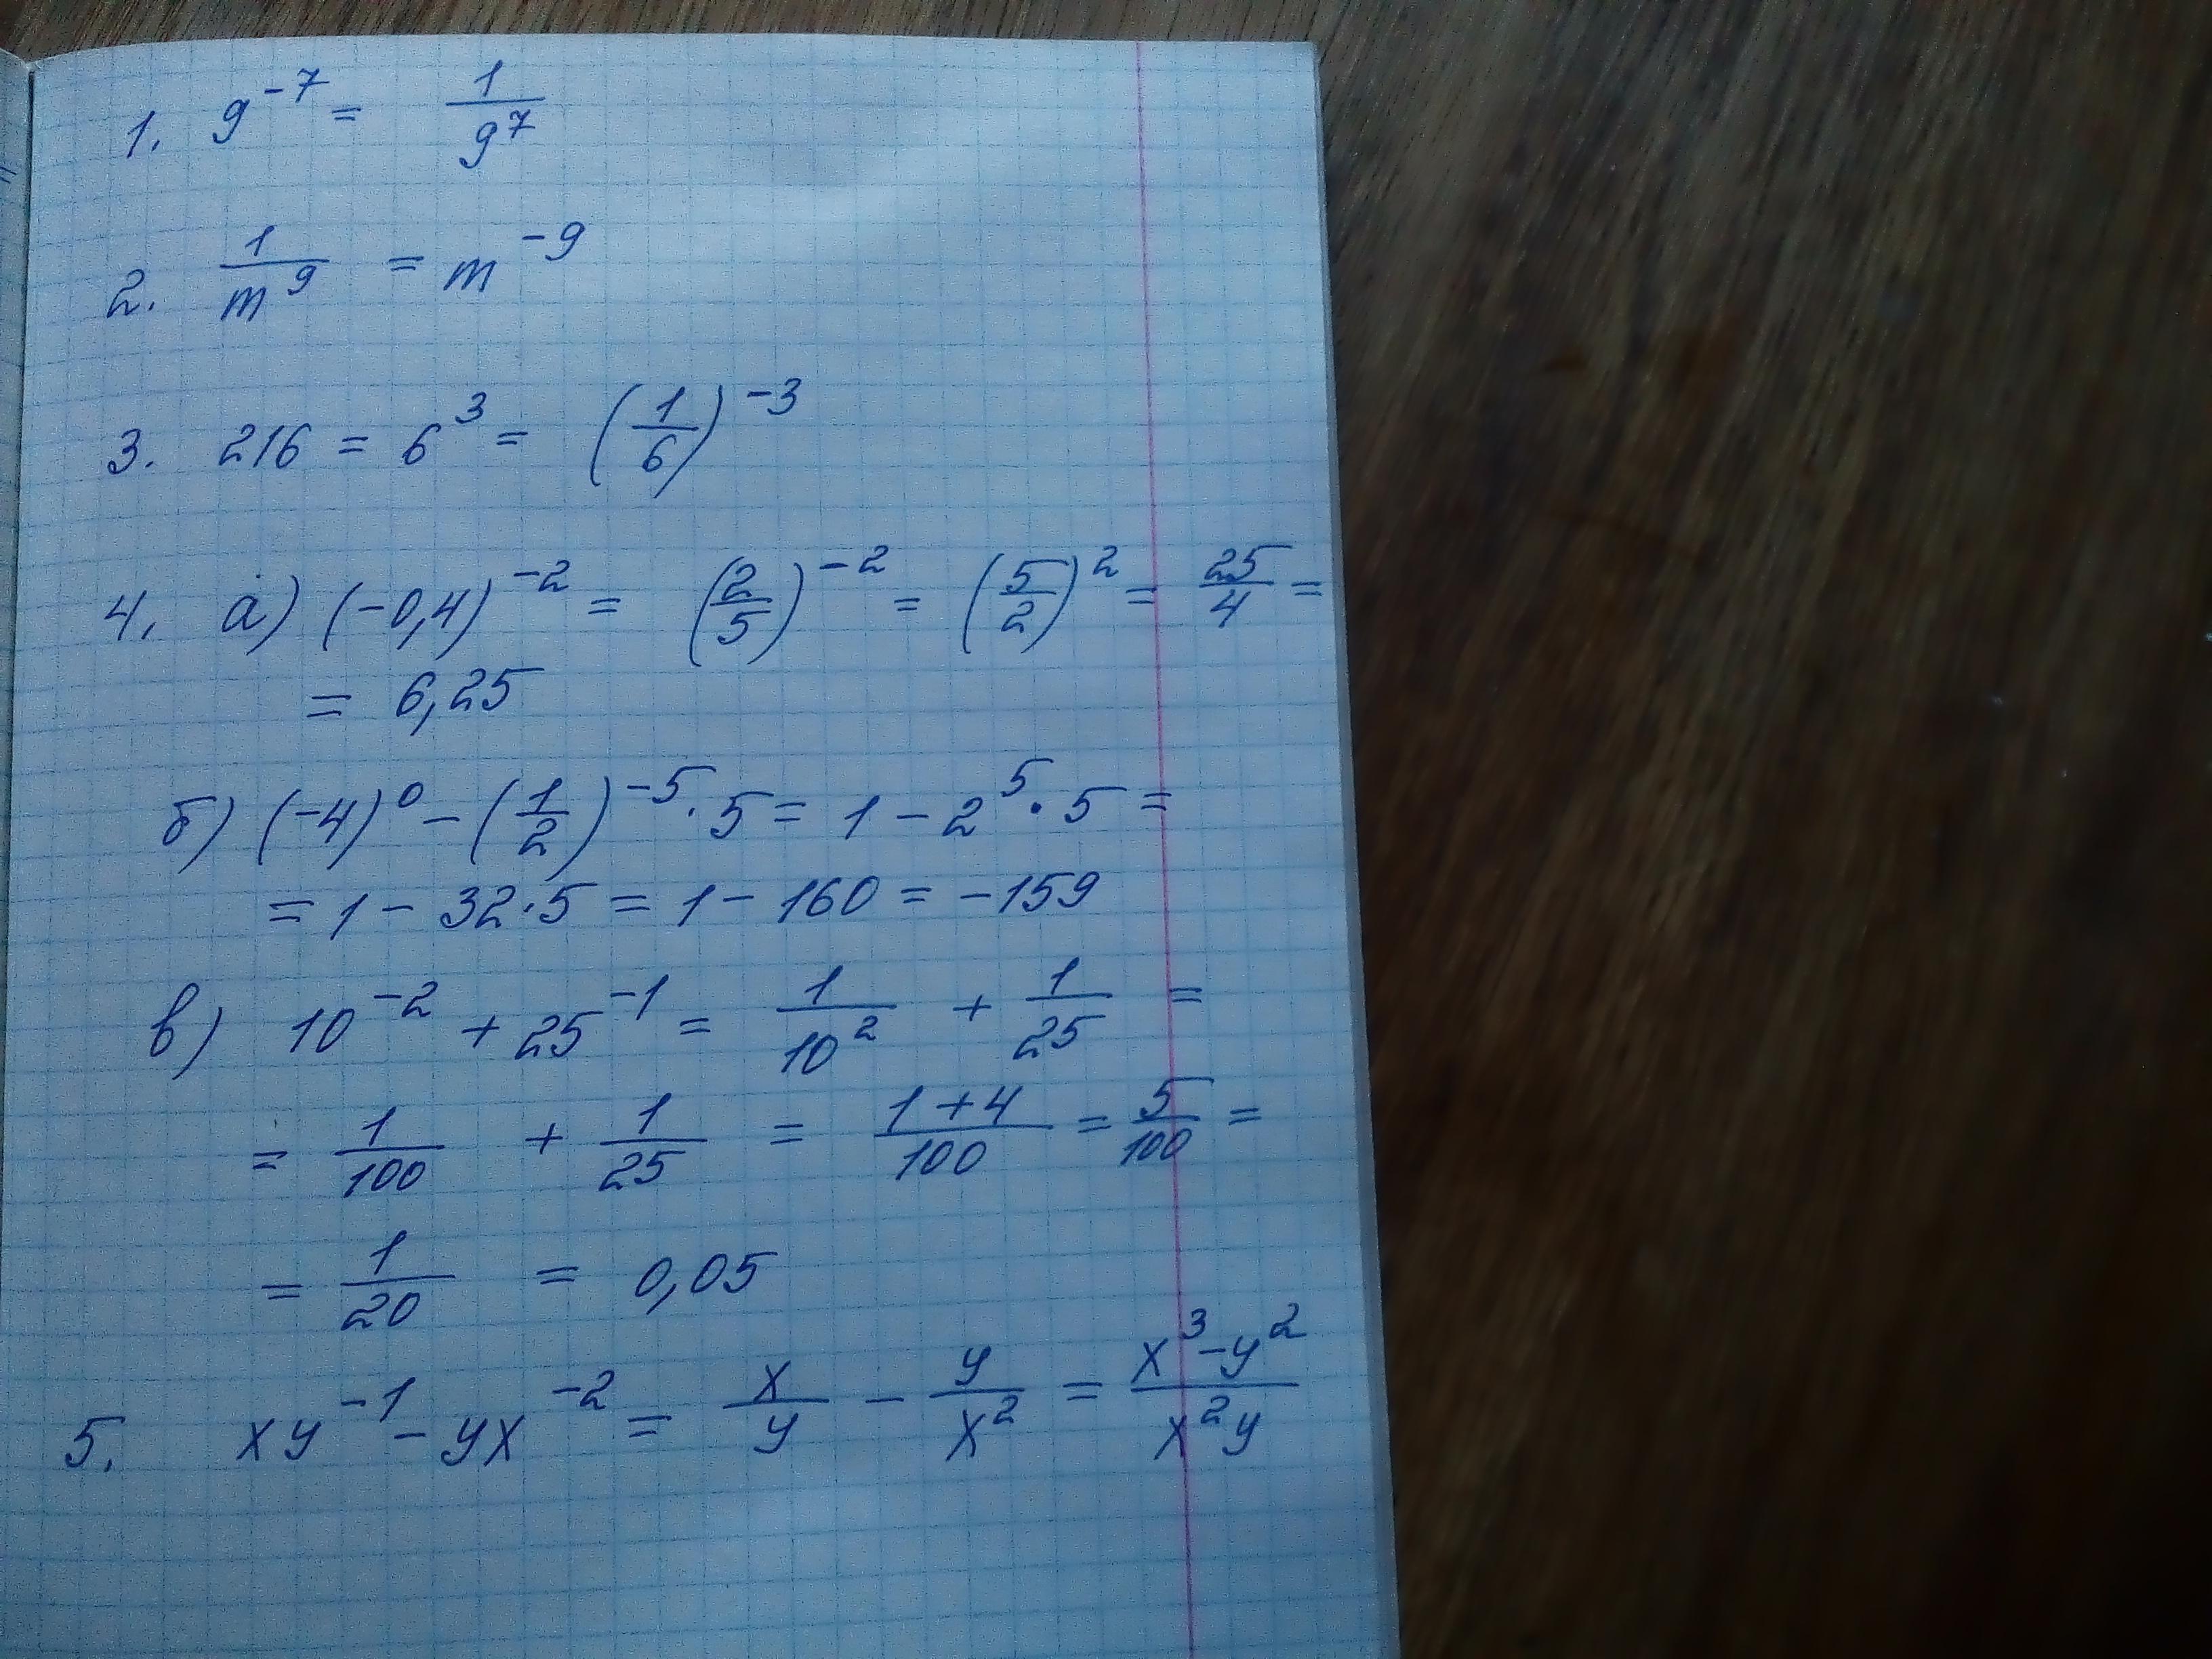 1. 9^{-7} = \frac{1}{9^7}
2. \frac{1}{m^9} = m^{-9}
3. 216 = 6^3 = (\frac{1}{6})^{-3}
4. а) (-0,4)^{-2} = (\frac{2}{5})^{-2} = (\frac{5}{2})^2 = \frac{25}{4} =
= 6,25
б) (-4)^0 - (\frac{1}{2})^{-5} · 5 = 1 - 2^5 · 5 =
= 1 - 32 · 5 = 1 - 160 = -159
в) 10^{-2} + 25^{-1} = \frac{1}{10^2} + \frac{1}{25} =
= \frac{1}{100} + \frac{1}{25} = \frac{1+4}{100} = \frac{5}{100} =
= \frac{1}{20} = 0,05
5. xy^{-1} - yx^{-2} = \frac{x}{y} - \frac{y}{x^2} = \frac{x^3 - y^2}{x^2y}